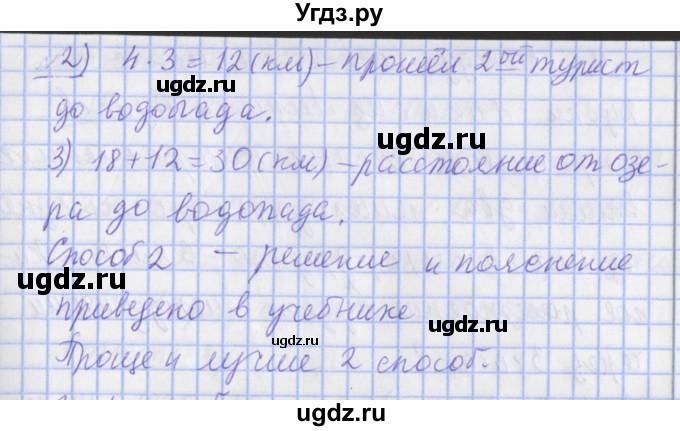 Угдз.ру
2) 4 · 3 = 12 (км) – прошёл 2ой турист
до водопада.
ugdz.ru
ugdz.ru
3) 18 + 12 = 30 (км) – расстояние от озе-
ра до водопада.
ugdz.ru
Способ 2 – решение и пояснение
ugdz.ru
приведено в учебнике
ugdz.ru
Проще и лучше 2 способ.
ugdz.ru
ugdz.ru